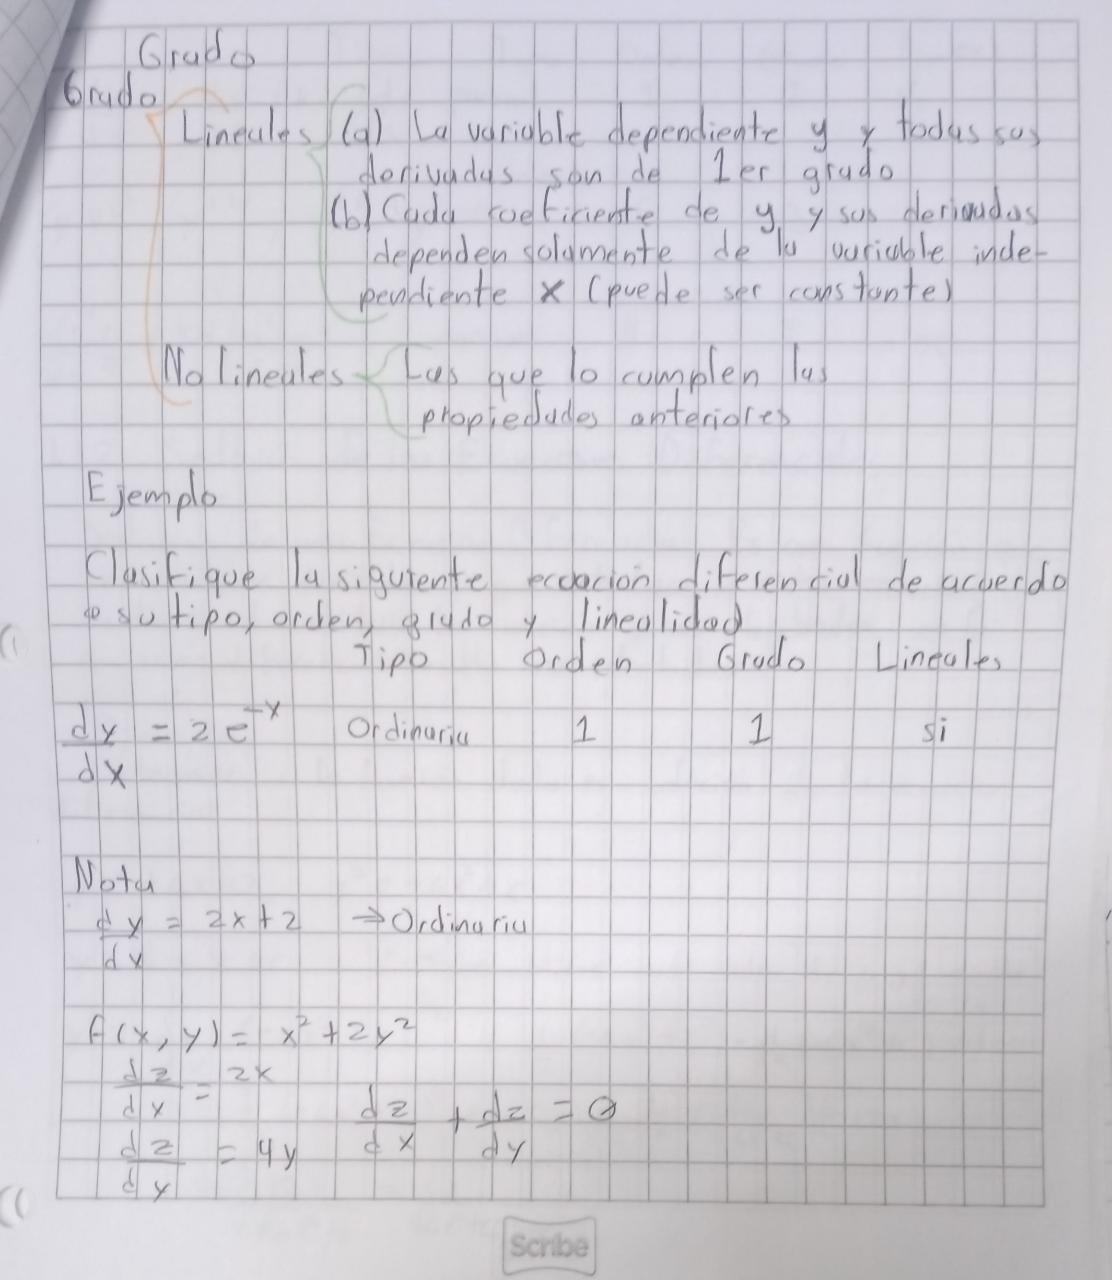 Grado
Grado
Lineales (a) La variable dependiente y y todas sus
derivadas son de 1er grado
(b) Cada coeficiente de y, y sus derivadas
dependen solamente de la variable inde-
pendiente x (puede ser constante)
No lineales Las que lo cumplen las
propiedades anteriores
Ejemplo
Clasifique la siguiente ecuacion diferencial de acuerdo
a su tipo, orden, grado y linealidad
Tipo Orden Grado Lineales
dy/dx = 2e^-x Ordinaria 1 1 si
Nota
dy/dy = 2x+2 → Ordinaria
f(x, y) = x² + 2y²
dz/dx = 2x
dz/dx + dz/dy = 0
dz/dy = 4y
Scribe